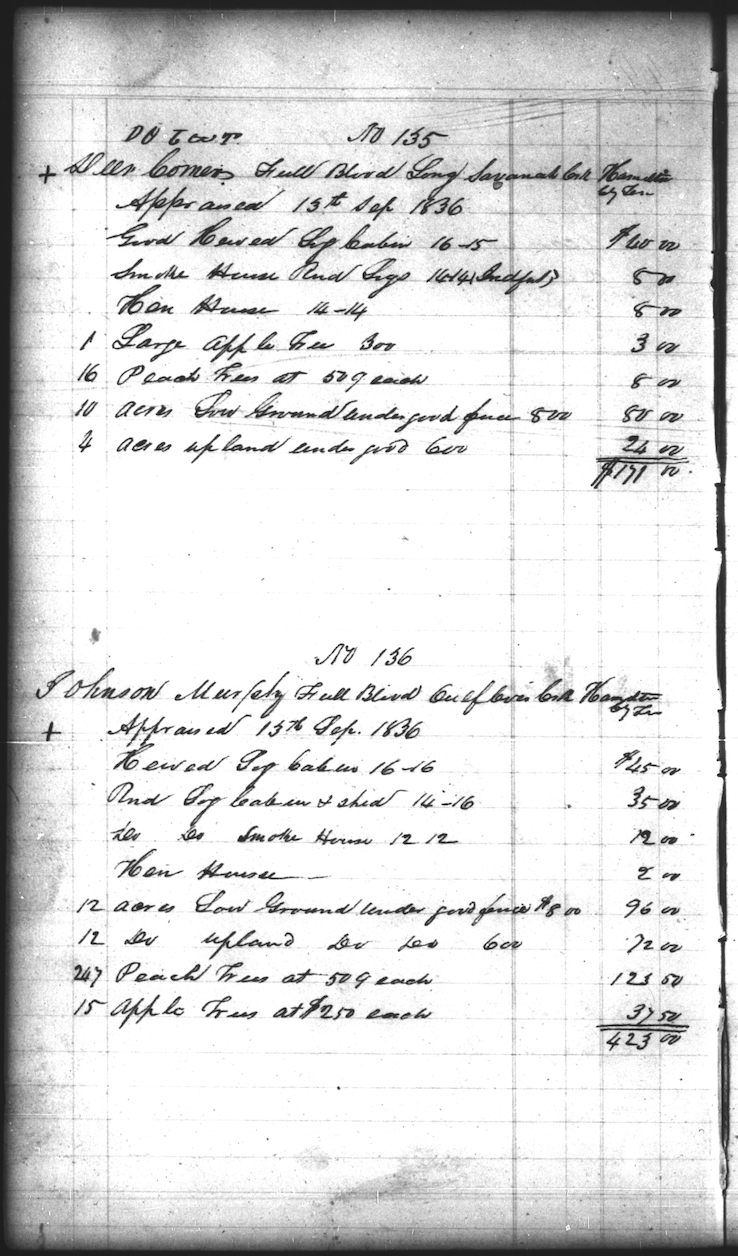 No 135
+ Deer Comers Full Blood Long Savanah Crk Hamilton
Cty Ten
Appraised 13th Sep 1836
Good Hewed Log Cabin 16-15 $40 00
Smoke House Rnd Logs 14-14 8 00
Hen House 14-14 8 00
1 Large Apple Tree 300 3 00
16 Peach Trees at 50 ¢ each 8 00
10 acres Low Ground under good fence 800 80 00
4 acres upland under good 600 24 00
$171 00
No 136
Johnson Murphy Full Blood Crk Hamilton
Cty Ten
+ Appraised 13th Sep. 1836
Hewed Log Cabin 16-16 $45 00
Rnd Log Cabin & shed 14-16 35 00
Do Do Smoke House 12 12 12 00
Hen House 2 00
12 acres Low Ground under good fence $8 00 96 00
12 Do upland Do Do 600 72 00
247 Peach Trees at 50 ¢ each 123 50
15 Apple Trees at $250 each 37 50
423 00